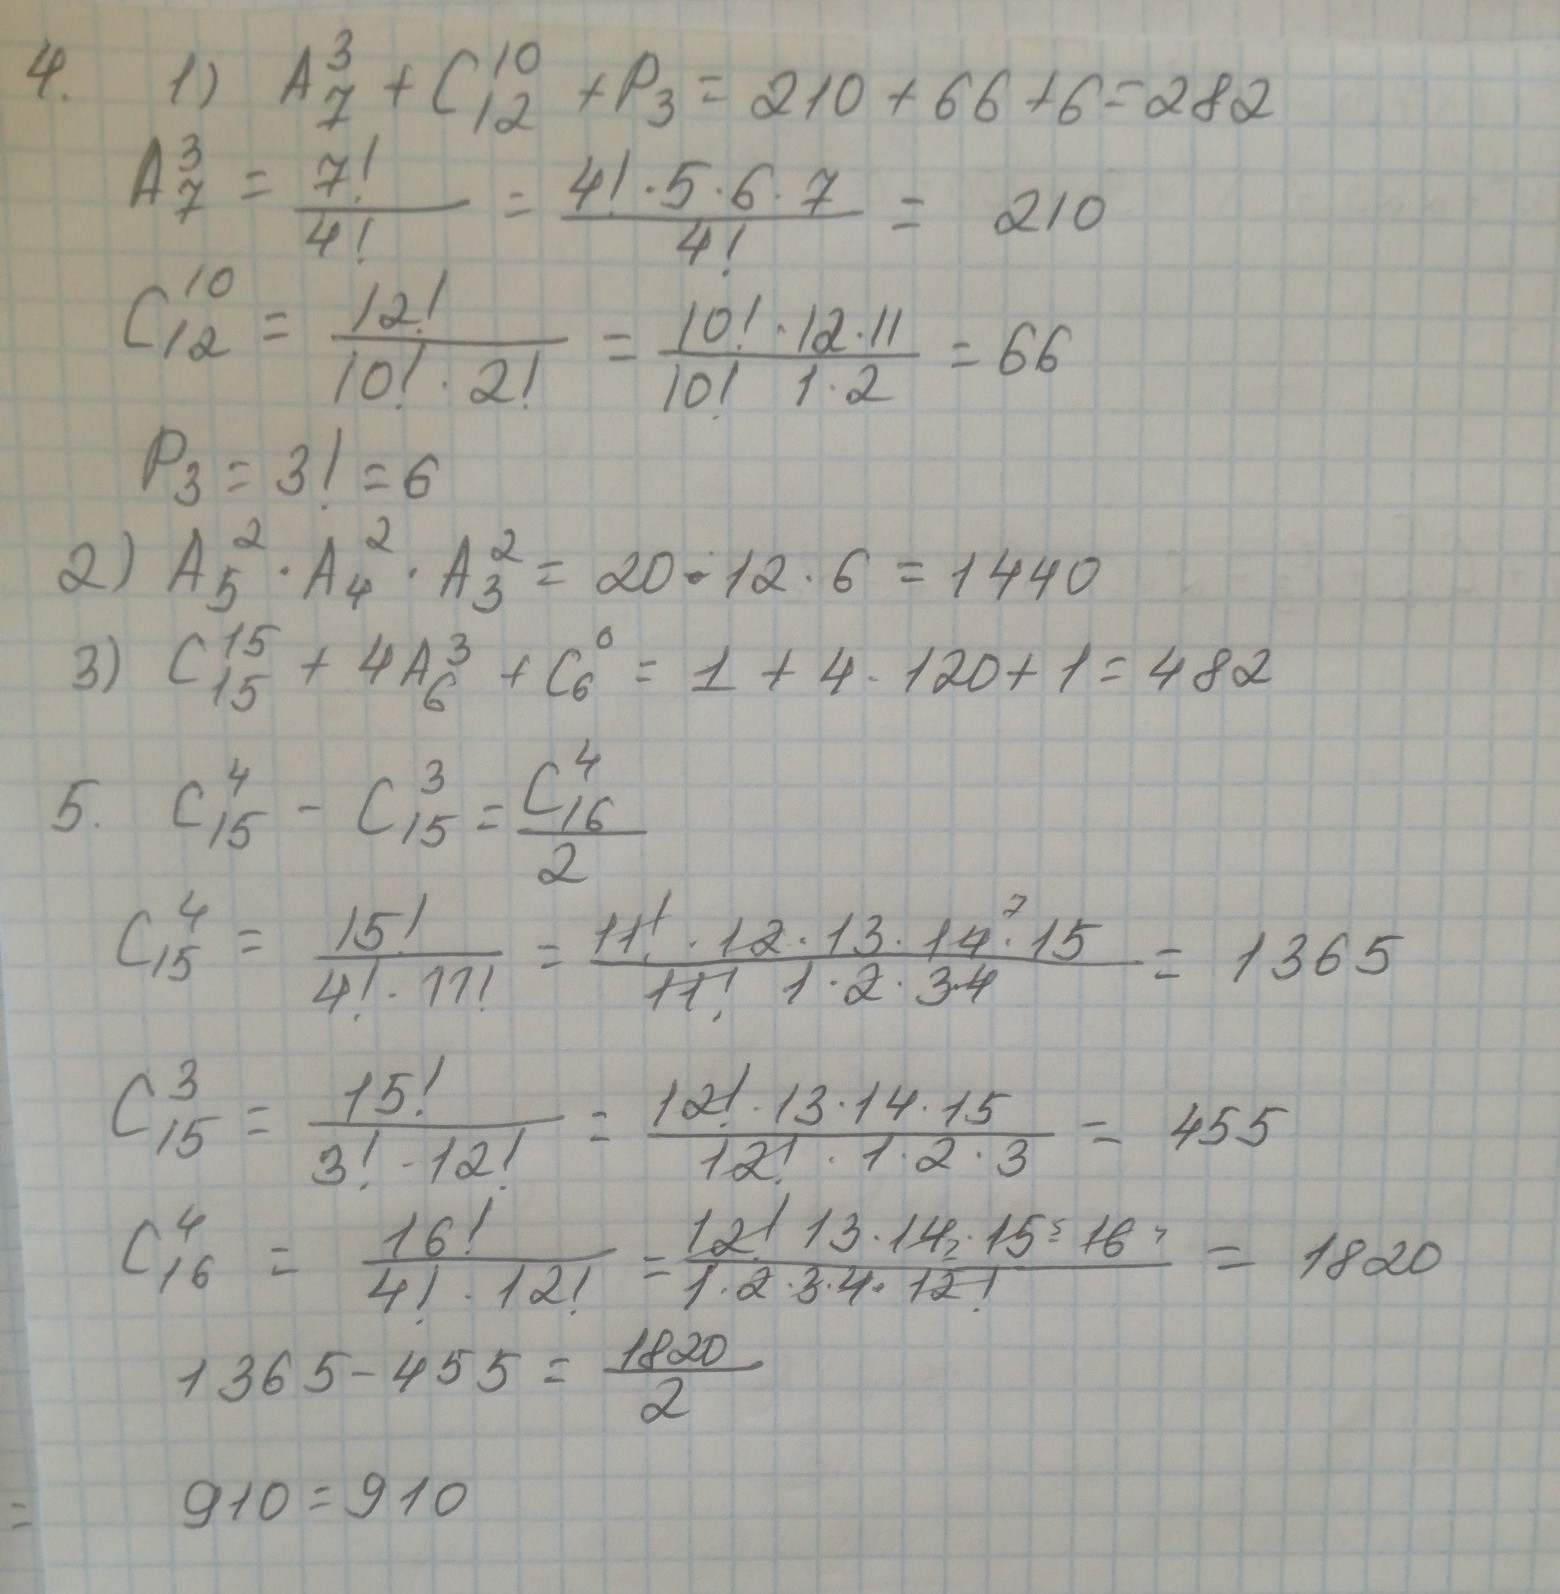 4. 1) A₇³ + C₁₂¹⁰ + P₃ = 210 + 66 + 6 = 282
A₇³ = 7!/4! = 4!·5·6·7/4! = 210
C₁₂¹⁰ = 12!/10!·2! = 10!·12·11/10! 1·2 = 66
P₃ = 3! = 6
2) A₅²·A₄²·A₃² = 20·12·6 = 1440
3) C₁₅¹⁵ + 4A₆³ + C₆⁰ = 1 + 4·120 + 1 = 482
5. C₁₅⁴ - C₁₅³ = C₁₆⁴/2
C₁₅⁴ = 15!/4!·11! = 11!·12·13·14⁷·15/11! 1·2·3·4 = 1365
C₁₅³ = 15!/3!·12! = 12!·13·14·15/12!·1·2·3 = 455
C₁₆⁴ = 16!/4!·12! = 12! 13·14·15·16/1·2·3·4·12! = 1820
1365 - 455 = 1820/2
910 = 910
=